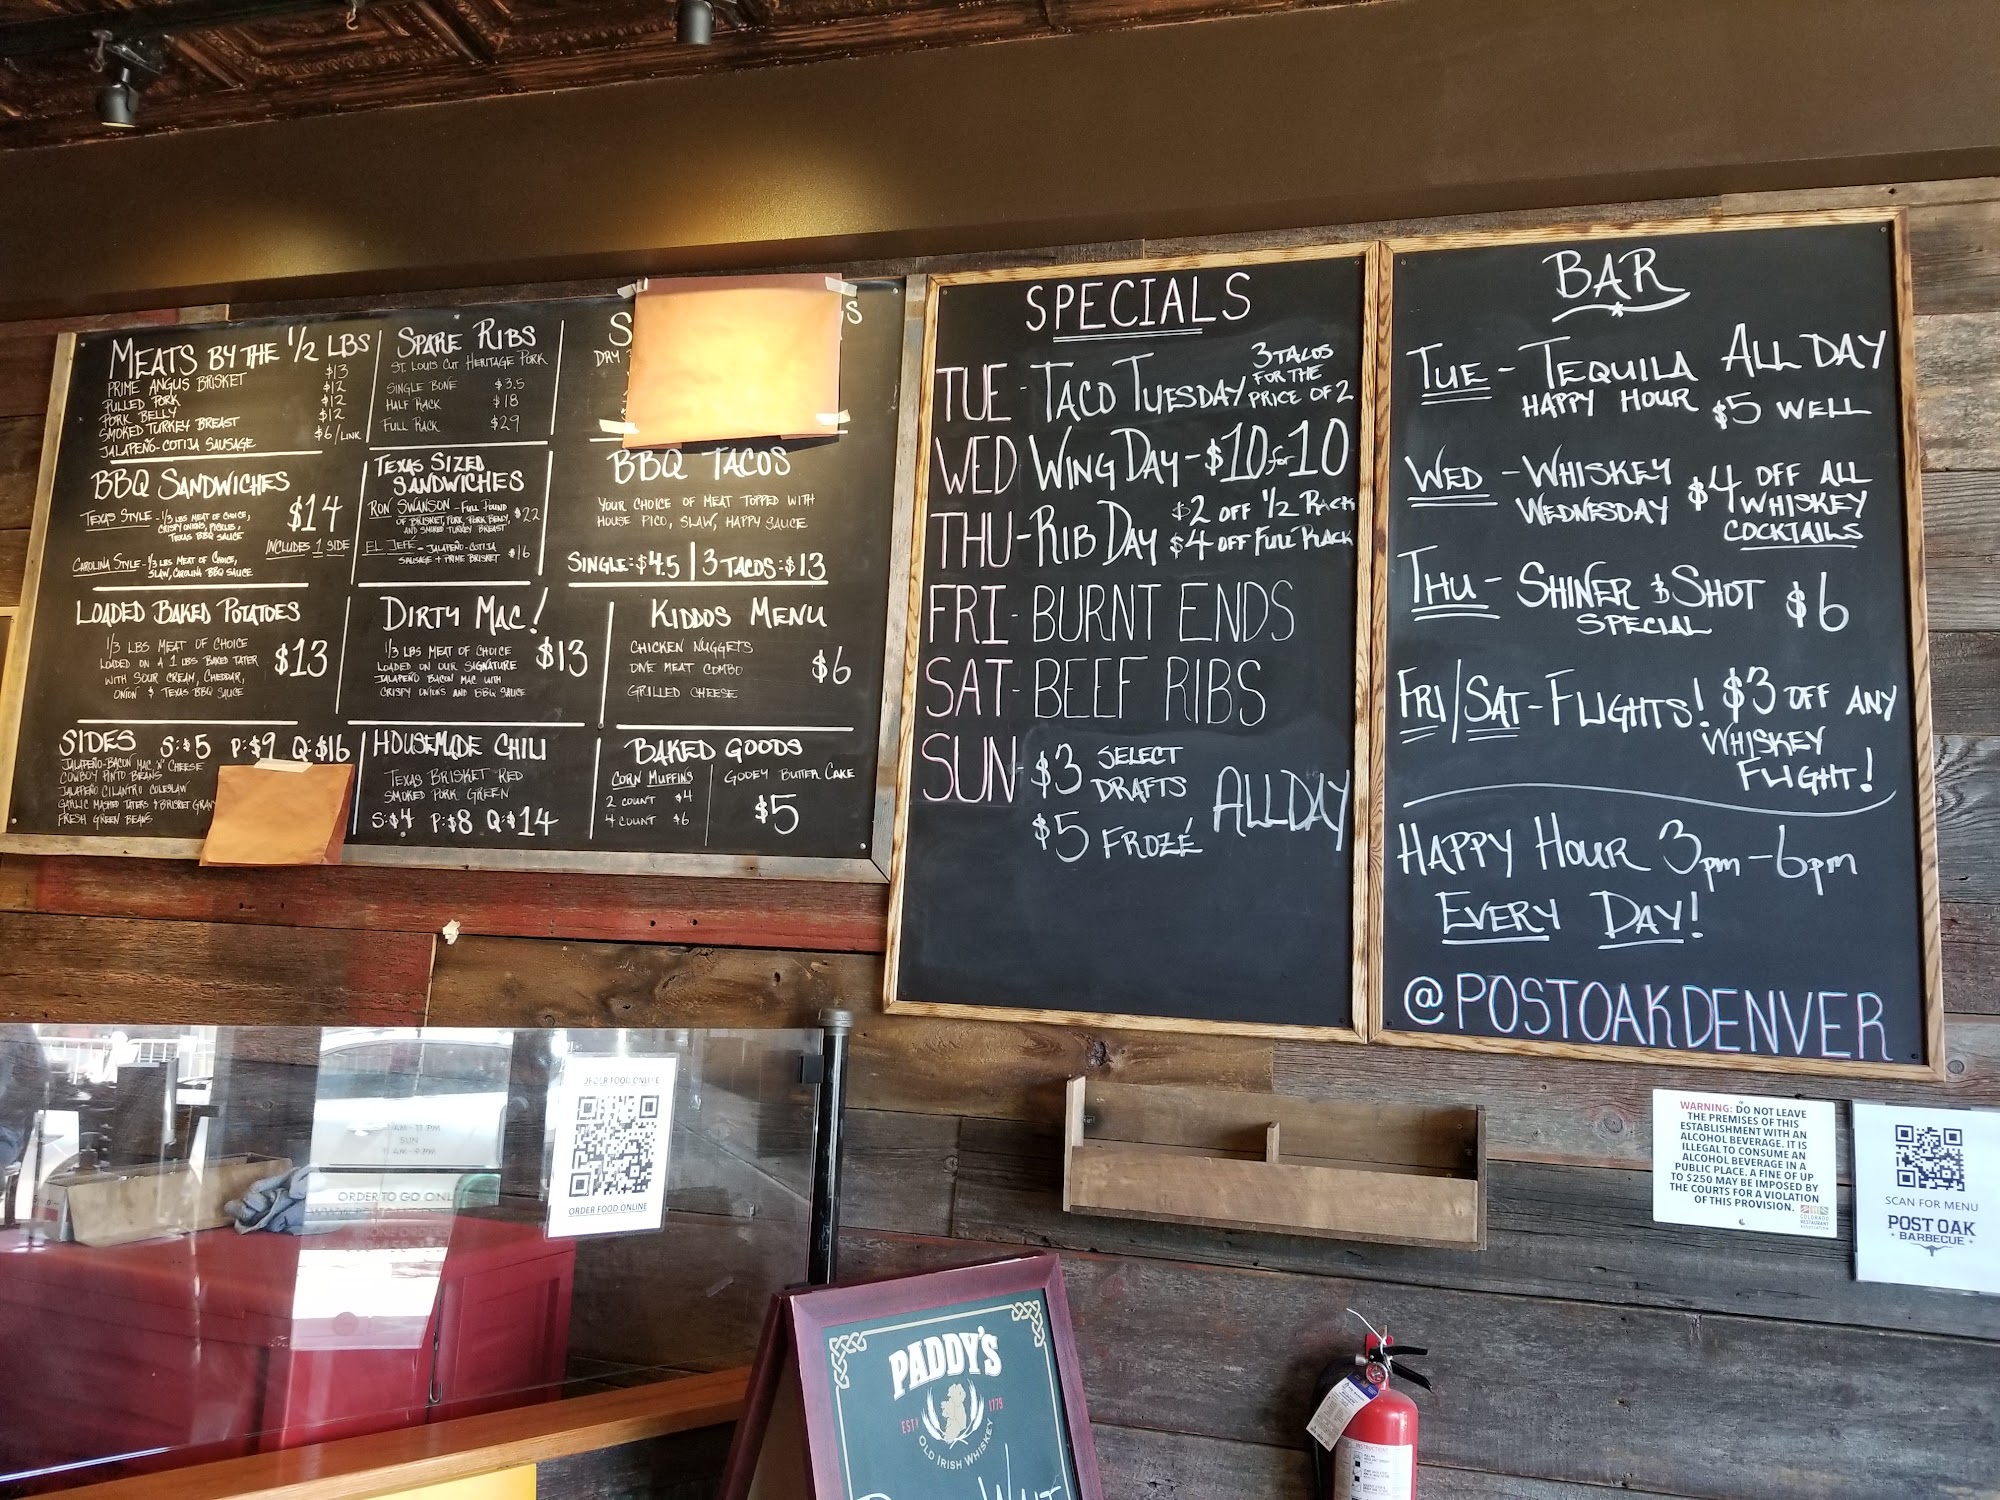 MEATS BY THE 1/2 LBS
PRIME ANGUS BRISKET $13
PULLED PORK $12
PORK BELLY $12
SMOKED TURKEY BREAST $12
JALAPEÑO-COTIJA SAUSAGE $6/LINK
SPARE RIBS
ST. LOUIS CUT HERITAGE PORK
SINGLE BONE $3.5
HALF RACK $18
FULL RACK $29
S
S
DRY
BBQ SANDWICHES
$14
TEXAS STYLE - 1/3 LBS MEAT OF CHOICE,
CRISPY ONIONS, PICKLES,
TEXAS BBQ SAUCE
INCLUDES 1 SIDE
CAROLINA STYLE - 1/3 LBS MEAT OF CHOICE,
SLAW, CAROLINA BBQ SAUCE
TEXAS SIZED
SANDWICHES
RON SWANSON - FULL POUND
OF BRISKET, PORK, PORK BELLY,
AND SMOKED TURKEY BREAST
$22
EL JEFE - JALAPEÑO-COTIJA
SAUSAGE + PRIME BRISKET
$16
BBQ TACOS
YOUR CHOICE OF MEAT TOPPED WITH
HOUSE PICO, SLAW, HAPPY SAUCE
SINGLE: $4.5 | 3 TACOS: $13
LOADED BAKED POTATOES
1/3 LBS MEAT OF CHOICE
LOADED ON A 1 LBS BAKED TATER
WITH SOUR CREAM, CHEDDAR,
ONION & TEXAS BBQ SAUCE
$13
DIRTY MAC!
1/3 LBS MEAT OF CHOICE
LOADED ON OUR SIGNATURE
JALAPEÑO BACON MAC WITH
CRISPY ONIONS AND BBQ SAUCE
$13
KIDDOS MENU
CHICKEN NUGGETS
ONE MEAT COMBO
GRILLED CHEESE
$6
SIDES S: $5 P: $9 Q: $16
JALAPEÑO-BACON MAC 'N' CHEESE
COWBOY PINTO BEANS
JALAPEÑO CILANTRO COLESLAW
GARLIC MASHED TATERS & BRISKET GRAV
FRESH GREEN BEANS
HOUSEMADE CHILI
TEXAS BRISKET RED
SMOKED PORK GREEN
S: $4 P: $8 Q: $14
BAKED GOODS
CORN MUFFINS
2 COUNT $4
4 COUNT $6
GOOEY BUTTER CAKE
$5
SPECIALS
TUE - TACO TUESDAY 3 TACOS FOR THE PRICE OF 2
WED WING DAY - $10 for 10
THU - RIB DAY $2 OFF 1/2 RACK
$4 OFF FULL RACK
FRI - BURNT ENDS
SAT - BEEF RIBS
SUN - $3 SELECT DRAFTS
$5 FROZÉ
ALL DAY
BAR
TUE - TEQUILA HAPPY HOUR ALL DAY
$5 WELL
WED - WHISKEY WEDNESDAY $4 OFF ALL WHISKEY COCKTAILS
THU - SHINER & SHOT SPECIAL $6
FRI/SAT - FLIGHTS! $3 OFF ANY
WHISKEY
FLIGHT!
HAPPY HOUR 3pm - 6pm
EVERY DAY!
@POSTOAKDENVER
ORDER FOOD ONLINE
ORDER FOOD ONLINE
AM - 11 PM
SUN
AM - 9 PM
ORDER TO GO ONL
WARNING: DO NOT LEAVE
THE PREMISES OF THIS
ESTABLISHMENT WITH AN
ALCOHOL BEVERAGE. IT IS
ILLEGAL TO CONSUME AN
ALCOHOL BEVERAGE IN A
PUBLIC PLACE. A FINE OF UP
TO $250 MAY BE IMPOSED BY
THE COURTS FOR A VIOLATION
OF THIS PROVISION.
COLORADO
RESTAURANT
ASSOCIATION
SCAN FOR MENU
POST OAK
BARBECUE
PADDY'S
ESTD 1779
OLD IRISH WHISKEY
INSTRUCTIONS